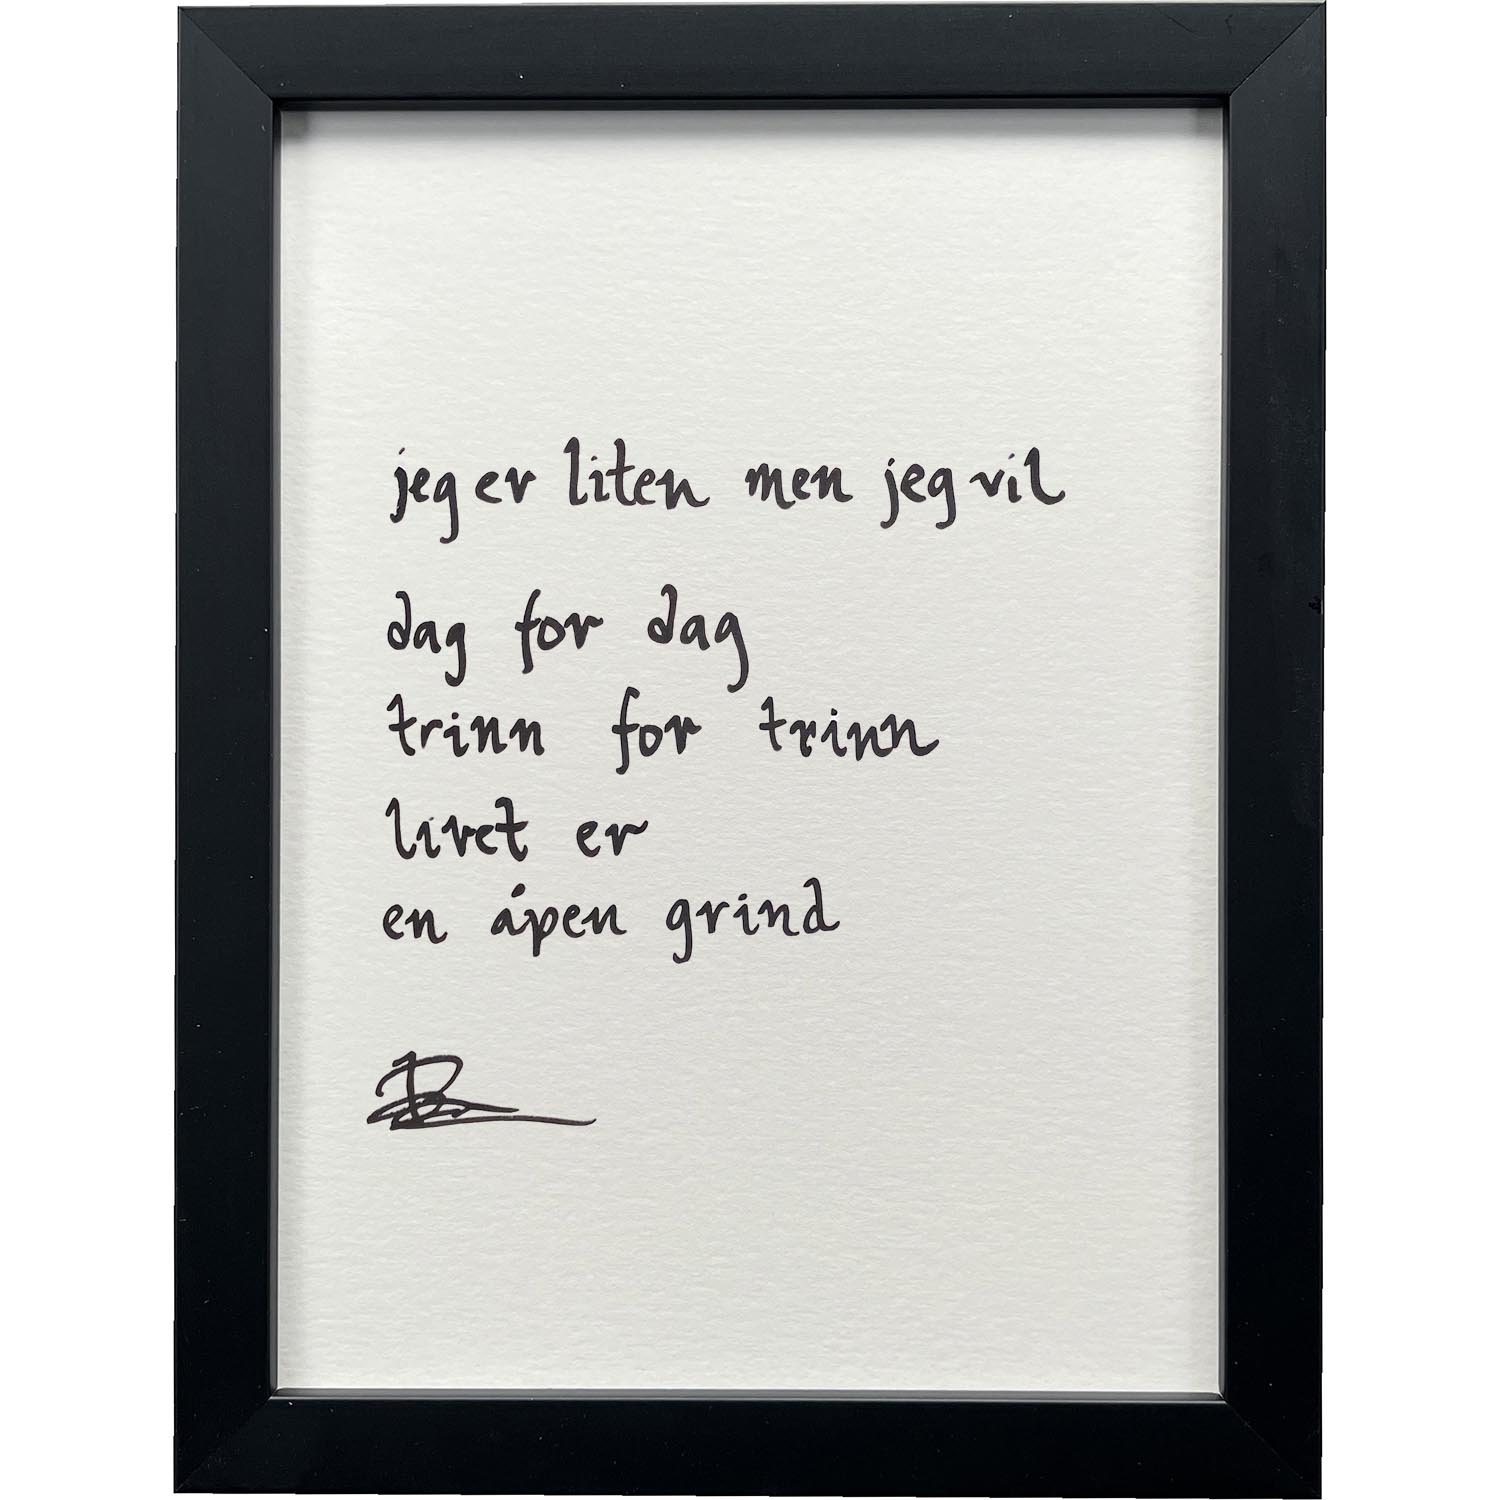 jeg er liten men jeg vil
dag for dag
trinn for trinn
livet er
en åpen grind